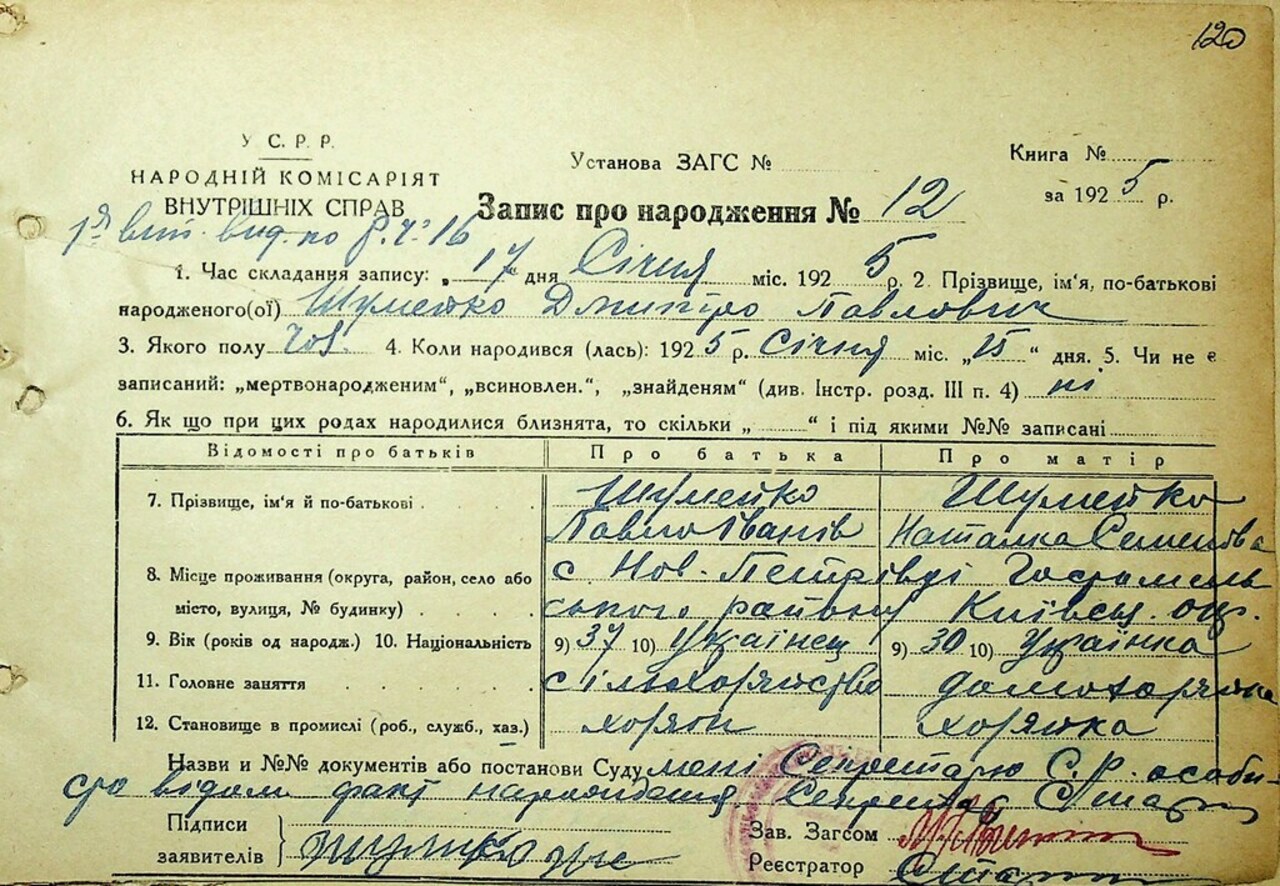 120
У С. Р. Р.
НАРОДНІЙ КОМІСАРІЯТ
ВНУТРІШНІХ СПРАВ
Установа ЗАГС №
Книга №
за 1925 р.
Запис про народження № 12
вид. по 16
1. Час складання запису: „17“ дня Січня міс. 1925 р. 2. Прізвище, ім'я, по-батькові
народженого(ої) Шумейко Дмитро Павлович
3. Якого полу чол. 4. Коли народився (лась): 1925 р. Січня міс. „15“ дня. 5. Чи не є
записаний: „мертвонародженим“, „всиновлен.“, „знайденям“ (див. Інстр. розд. III п. 4) ні
6. Як що при цих родах народилися близнята, то скільки „ “ і під якими №№ записані
Відомості про батьків Про батька Про матір
7. Прізвище, ім'я й по-батькові Шумейко Шумейко
Павло Іванів Наталка Семенова
8. Місце проживання (округа, район, село або с. Нов-Петрівці Гостомель
місто, вулиця, № будинку) ського району Київськ. окр.
9. Вік (років од народж.) 10. Національність 9) 37 10) Українец 9) 30 10) Українка
11. Головне заняття сільхозяйство домохазяйка
12. Становище в промислі (роб., служб., хаз.) хозяин хозяйка
Назви и №№ документів або постанови Суду мені Секретарю С.Р. особи-
сто відом факт народження. Секретар
Підписи
заявителів
Зав. Загсом
Реєстратор